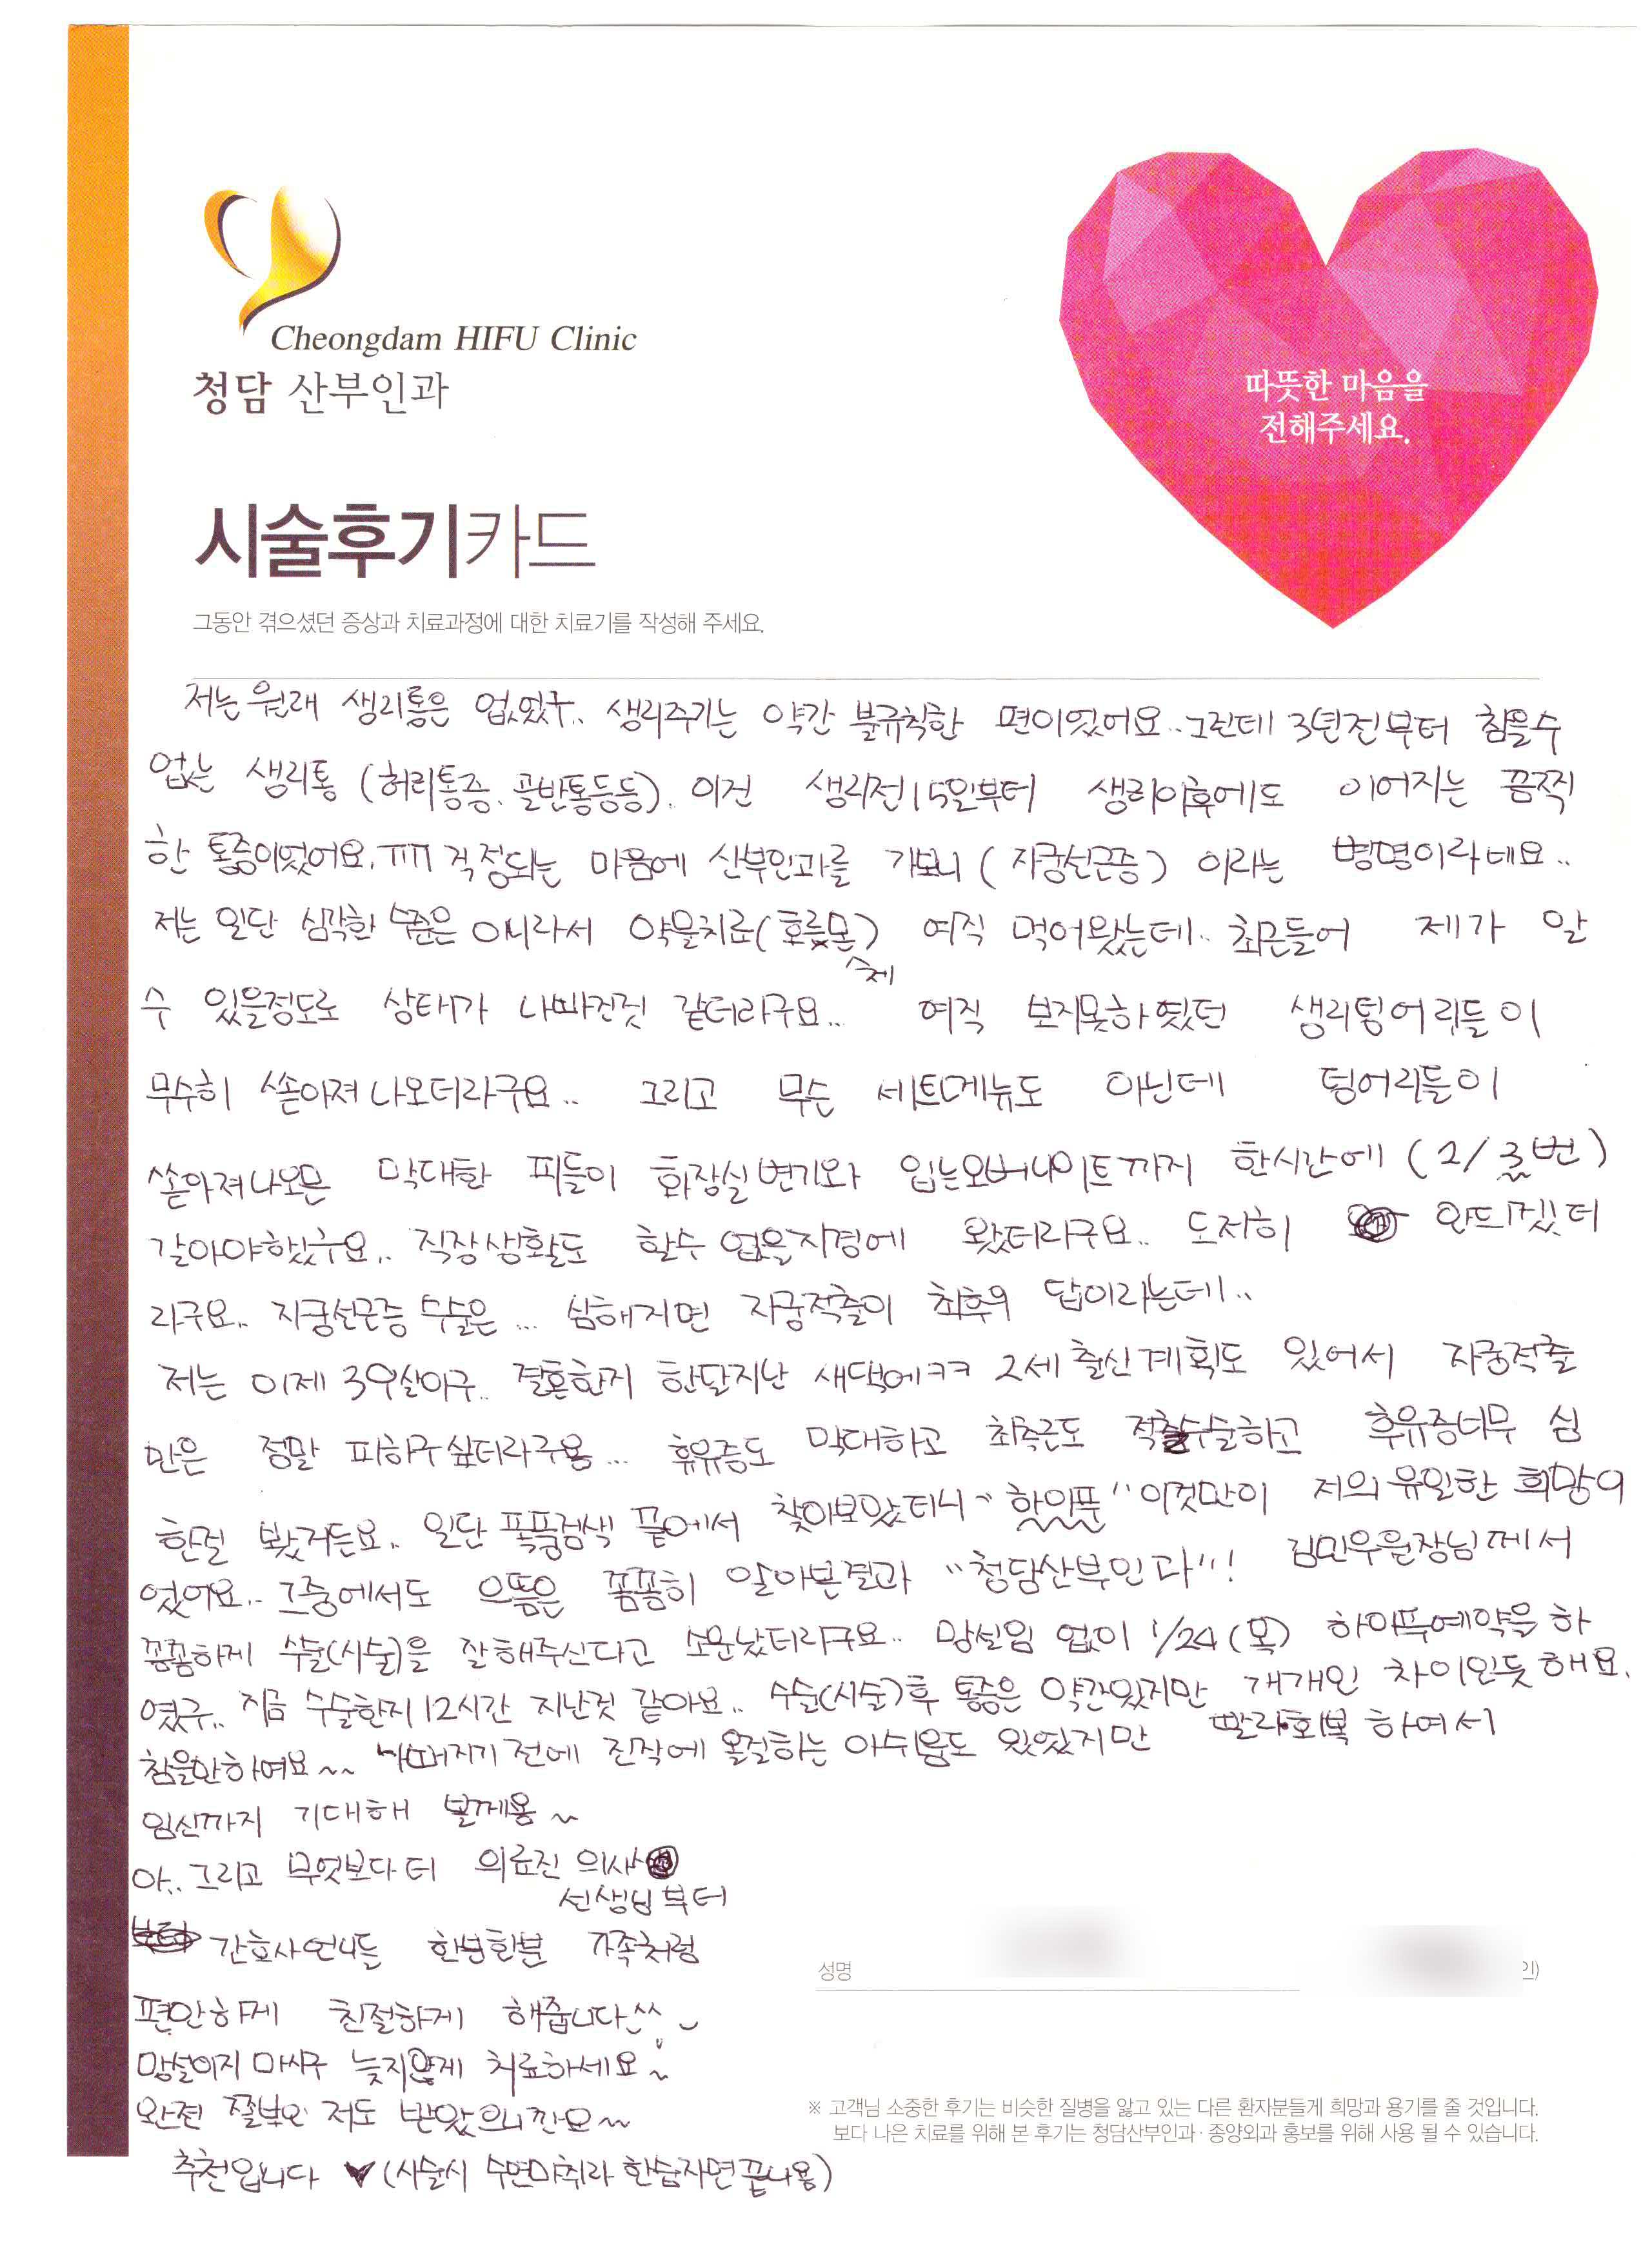 Cheongdam HIFU Clinic
청담 산부인과
따뜻한 마음을
전해주세요.
시술후기카드
그동안 겪으셨던 증상과 치료과정에 대한 치료기를 작성해 주세요.
저는 원래 생리통은 없었구.. 생리주기는 약간 불규칙한 편이었어요..그런데 3년전부터 참을수
없는 생리통 (허리통증, 골반통등등). 이건 생리전15일부터 생리이후에도 이어지는 끔찍
한 통증이었어요. ㅠㅠ 걱정되는 마음에 산부인과를 가보니 (자궁선근증) 이라는 병명이라데요..
저는 일단 심각한 수준은 아니라서 약물치료(호르몬제) 여직 먹어왔는데.. 최근들어 제가 알
수 있을정도로 상태가 나빠진것 같더라구요.. 여직 보지못하였던 생리덩어리들이
무수히 쏟아져나오더라구요.. 그리고 무슨 세트메뉴도 아닌데 덩어리들이
쏟아져나오믄 막대한 피들이 화장실변기와 입는오버나이트까지 한시간에 (2/3번)
갈아야했구요.. 직장생활도 할수 없을지경에 왔더라구요.. 도저히 안되겠더
라구요.. 자궁선근증 수술은 ... 심해지면 자궁적출이 최후의 답이라는데..
저는 이제 39살이구.. 결혼한지 한달지난 새댁에ㅋㅋ 2세 출산계획도 있어서 자궁적출
만은 정말 피하구싶더라구용... 후유증도 막대하고 최측근도 적출수술하고 후유증너무 심
한걸 봤거든요.. 일단 폭풍검색 끝에서 찾아보았더니 " 하이푸 " 이것만이 저의 유일한 희망이
었어요.. 그중에서도 으뜸은 꼼꼼히 알아본결과 "청담산부인과"! 김민우원장님께서
꼼꼼하게 수술(시술)을 잘해주신다고 소문났더라구요.. 망설임 없이 1/24 (목) 하이푸예약을 하
였구.. 지금 수술한지 12시간 지난것 같아요.. 수술(시술)후 통증은 약간있지만 개개인 차이인듯해요.
참을만하여요~~ 나빠지기전에 진작에 올걸하는 아쉬움도 있었지만 빨리회복 하여서
임신까지 기대해 볼께용~
아.. 그리고 무엇보다 더 의료진 의사
선생님부터
간호사언니들 한분한분 가족처럼
편안하게 친절하게 해줍니다^^
망설이지 마시구 늦지않게 치료하세요~
완전 저도 받았으니깐요~
추천입니다 ♥ (시술시 수면마취라 한숨자면끝나용)
성명
인)
※ 고객님 소중한 후기는 비슷한 질병을 앓고 있는 다른 환자분들게 희망과 용기를 줄 것입니다.
보다 나은 치료를 위해 본 후기는 청담산부인과·종양외과 홍보를 위해 사용 될 수 있습니다.